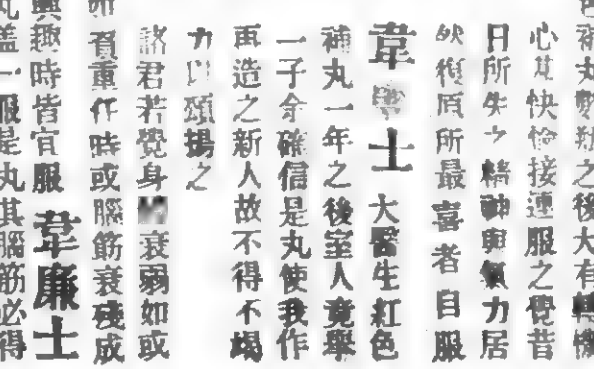 補丸數瓶之後大有轉機
心甚快愉接連服之覺昔
日所失之精神與氣力居
然復原所最喜者自服
韋廉士大醫生紅色
補丸一年之後室人竟舉
一子余確信是丸使我作
再造之新人故不得不竭
力以頌揚之
諸君若覺身體衰弱如或
有重任時或腦筋衰殘成
興趣時皆宜服韋廉士
丸蓋一服是丸其腦筋必得